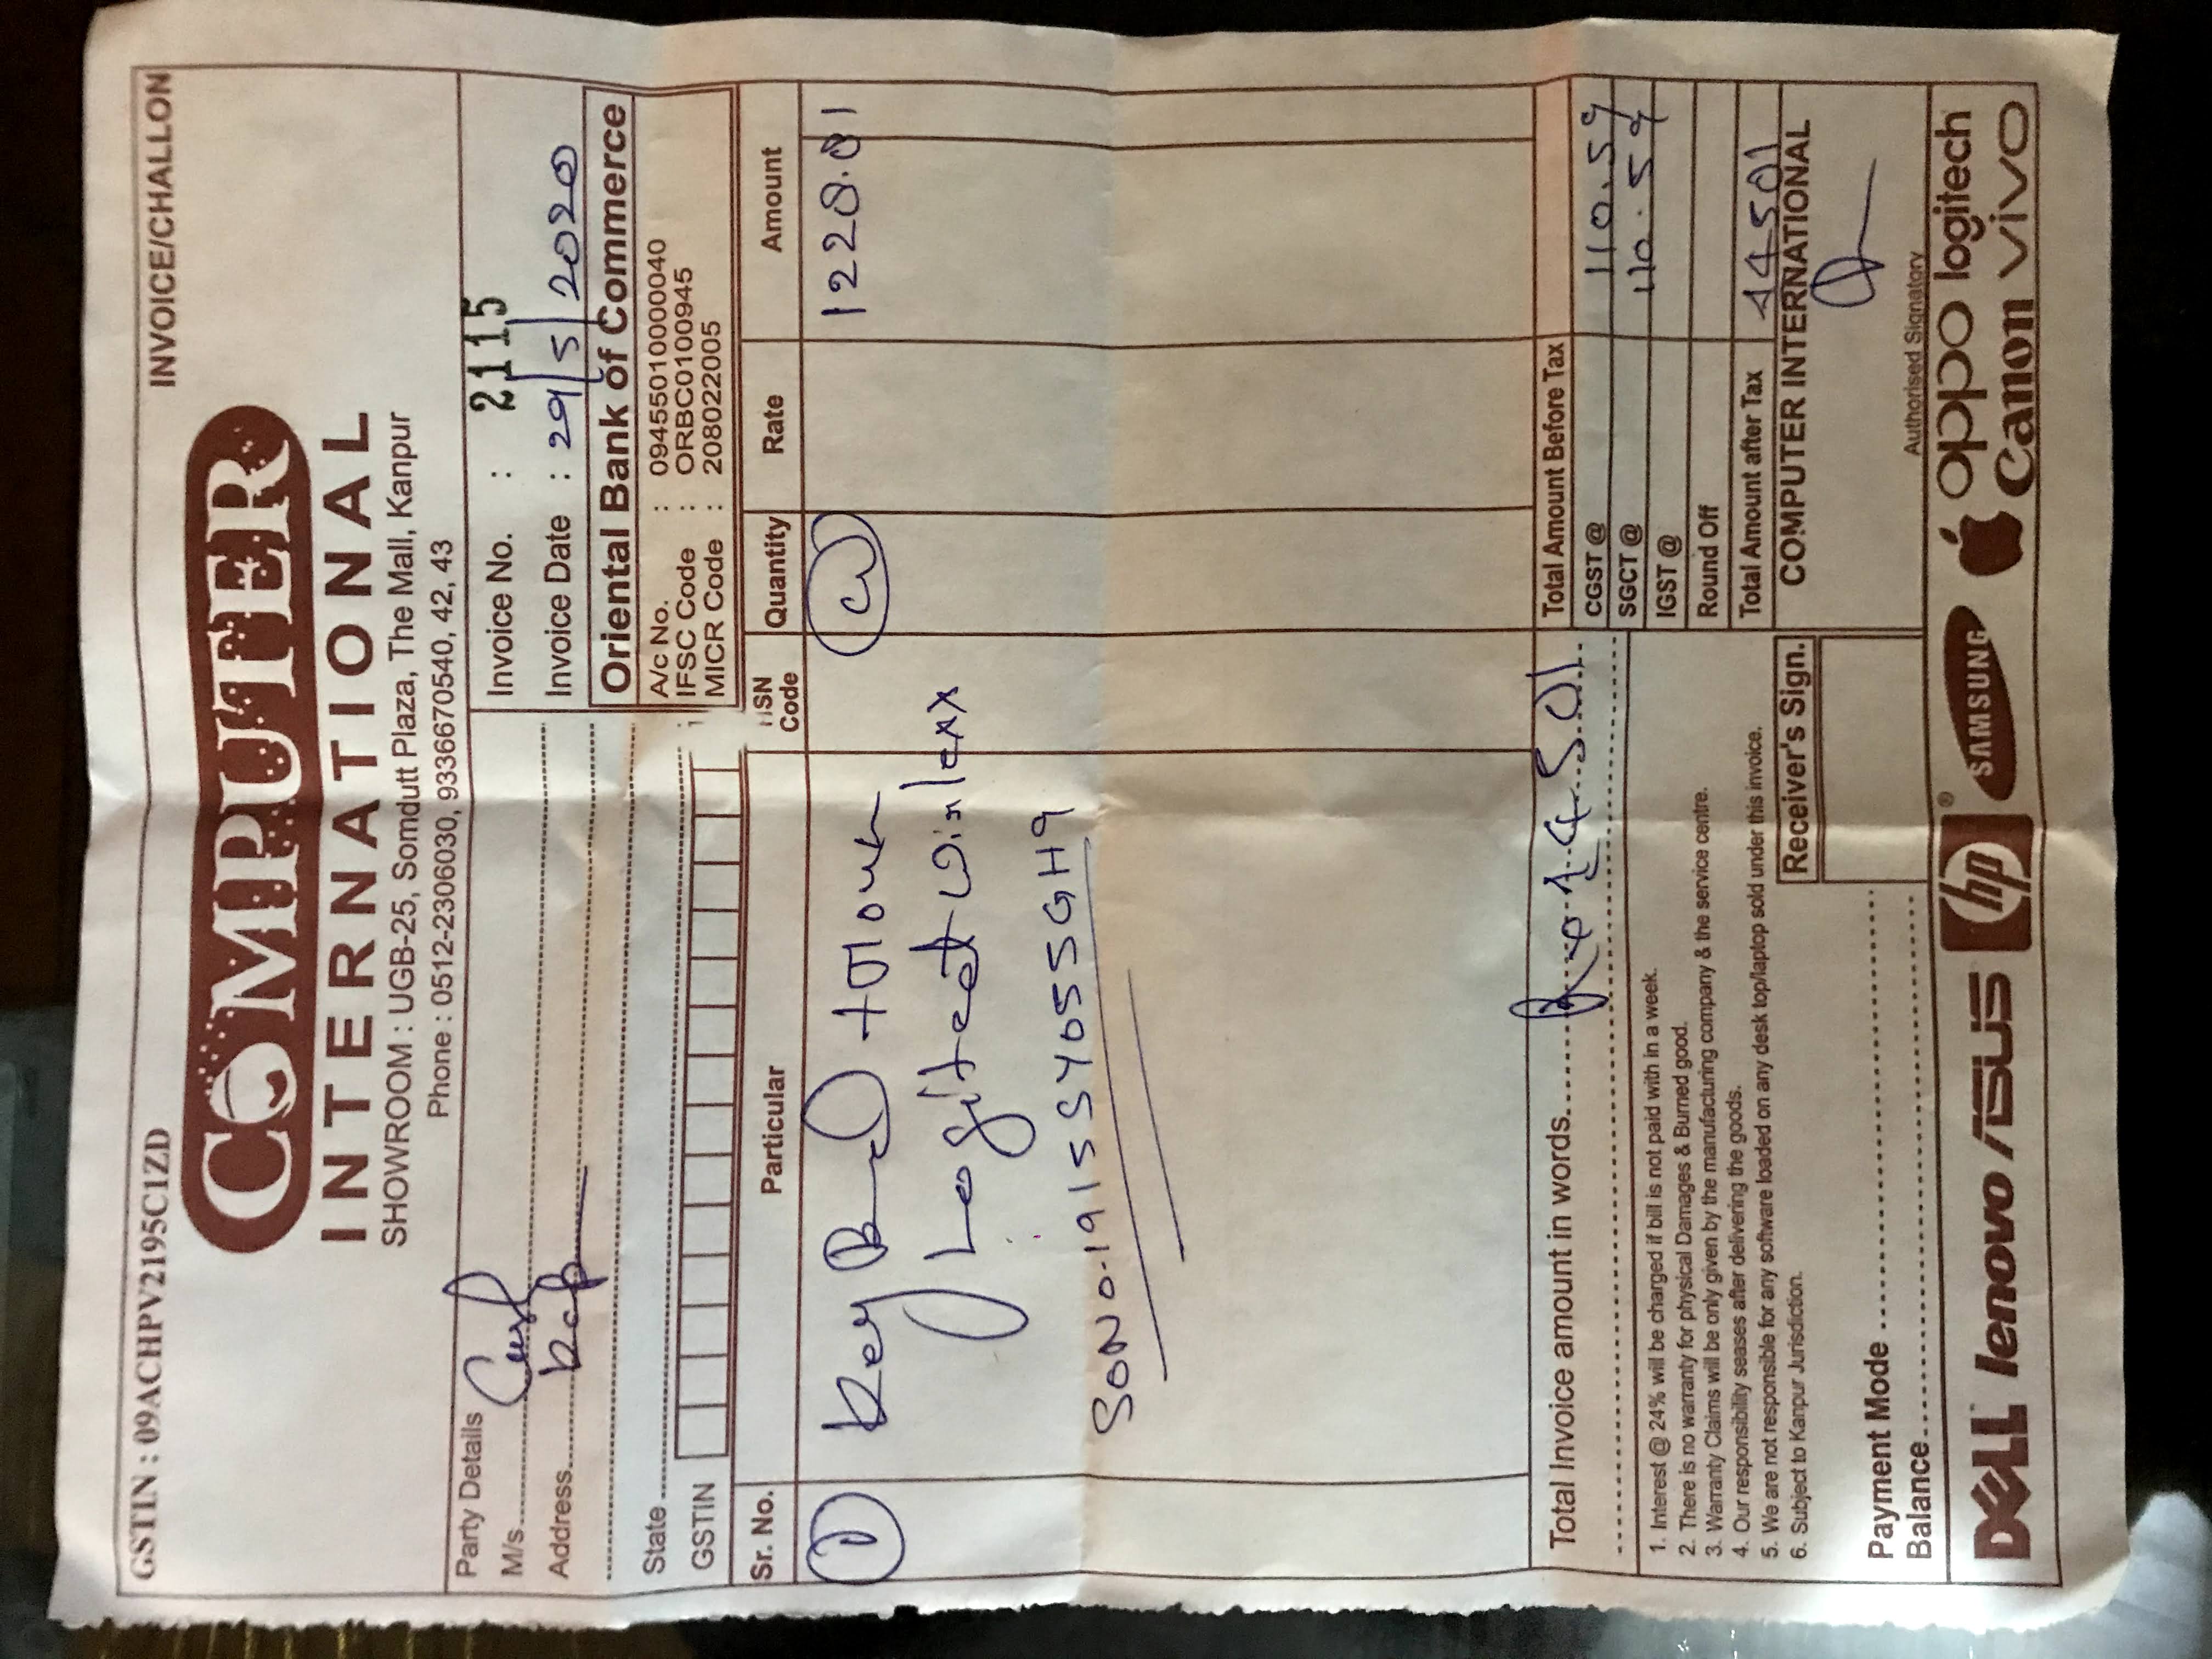 GSTIN : 09ACHPV2195C1ZD
INVOICE/CHALLON
COMPUTER
INTERNATIONAL
SHOWROOM : UGB-25, Somdutt Plaza, The Mall, Kanpur
Phone : 0512-2306030, 9336670540, 42, 43
Party Details
M/s. Cash
Address
State
GSTIN
Invoice No. : 2115
Invoice Date : 29/5/2020
Oriental Bank of Commerce
A/c No. : 09455010000040
IFSC Code : ORBC0100945
MICR Code : 208022005
Sr. No. Particular HSN Code Quantity Rate Amount
1 Key Board + Mouse 1228.81
Logitect Wirlexx
SONO.1915SY055GH9
Total Invoice amount in words Rs 1450/
Total Amount Before Tax
CGST @ 110.59
SGCT @ 110.59
IGST @
Round Off
Total Amount after Tax 1450/
1. Interest @ 24% will be charged if bill is not paid with in a week.
2. There is no warranty for physical Damages & Burned good.
3. Warranty Claims will be only given by the manufacturing company & the service centre.
4. Our responsibility seases after delivering the goods.
5. We are not responsible for any software loaded on any desk top/laptop sold under this invoice.
6. Subject to Kanpur Jurisdiction.
Receiver's Sign.
COMPUTER INTERNATIONAL
Payment Mode
Balance
Authorised Signatory
DELL lenovo ASUS hp SAMSUNG oppo logitech
Canon vivo